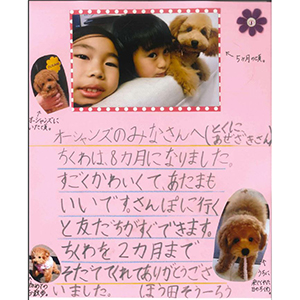 5ヵ月の頃。
オーシャンズに
いた頃。
オーシャンズのみなさんへ(とくにこ
あぜざきさん)
ちくわは、8カ月になりました。
すごくかわいくて、あたまも
いいです。さんぽに行く
と友だちがすぐできます。
ちくわを2カ月まで
そだててくれてありがとうござ
いました。 ほう田そうーろう
うちに